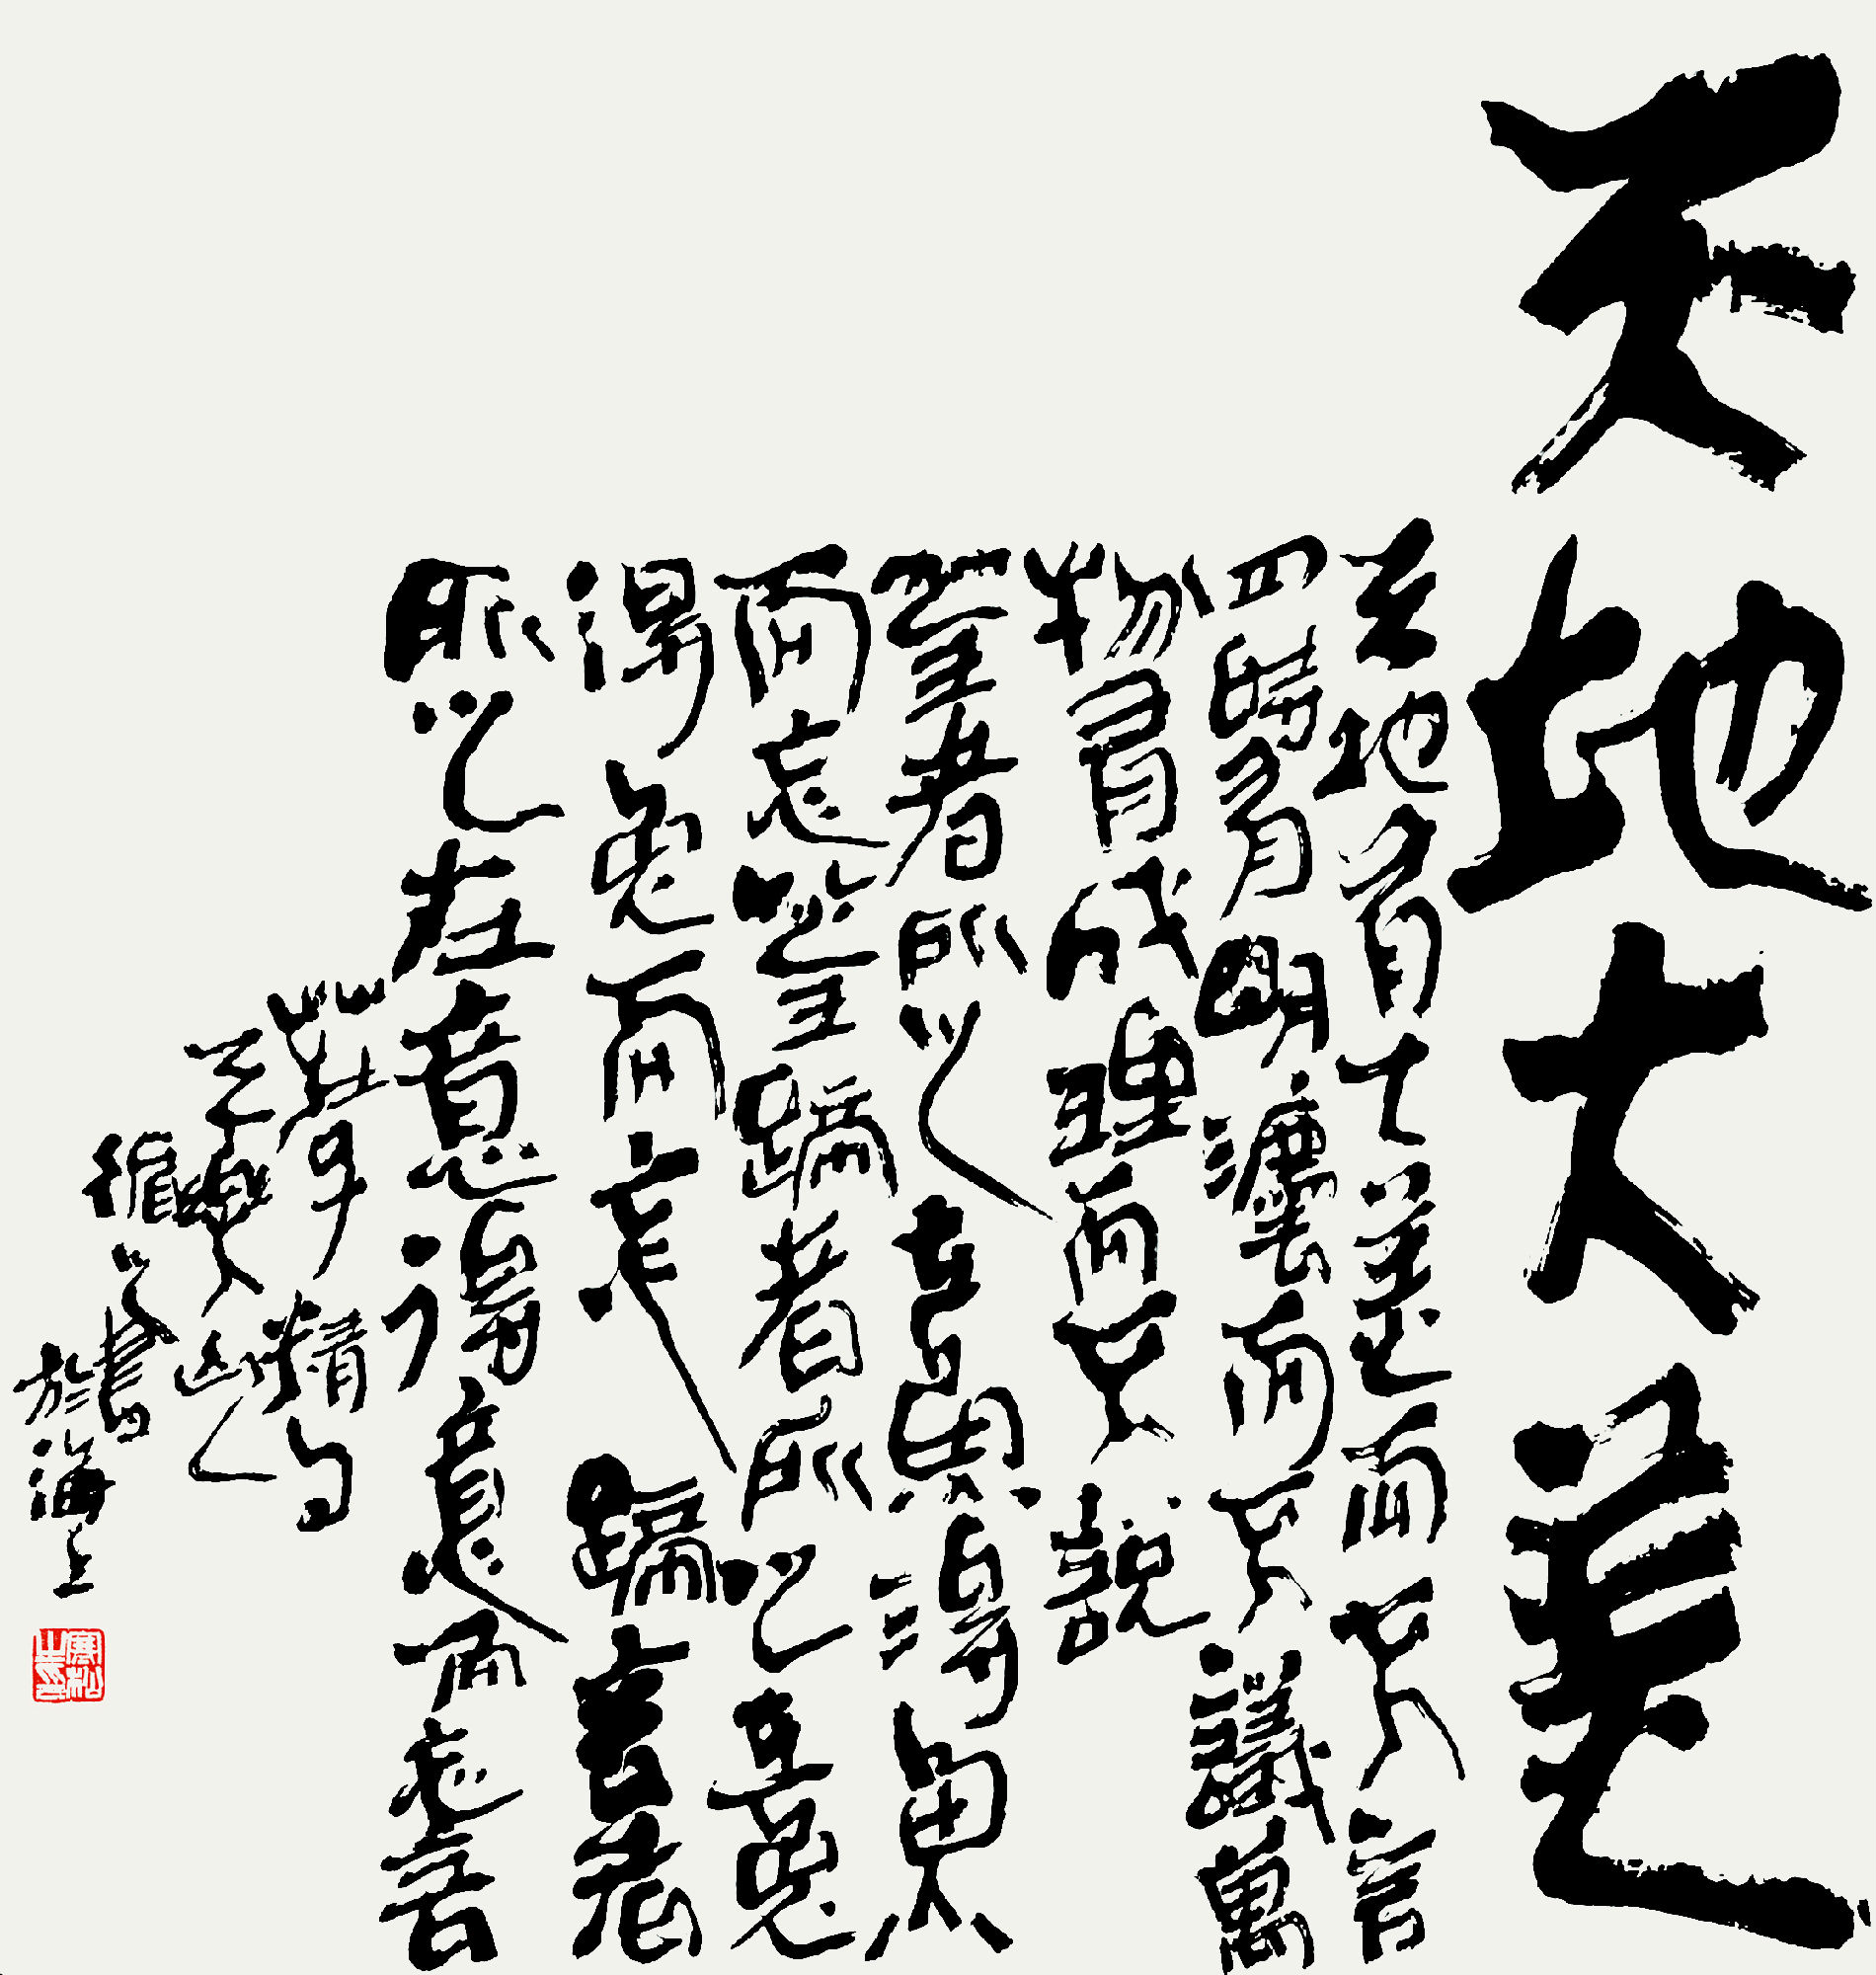 天地大美
天地有大美而不言
四時有明灋而不議萬
物有成理而不說
筌者所以在魚得魚
而忘筌蹄者所以在兔
得兔而忘蹄言者
所以在意得意而忘言
莊子精句
山人
書
於海上
寒松之印